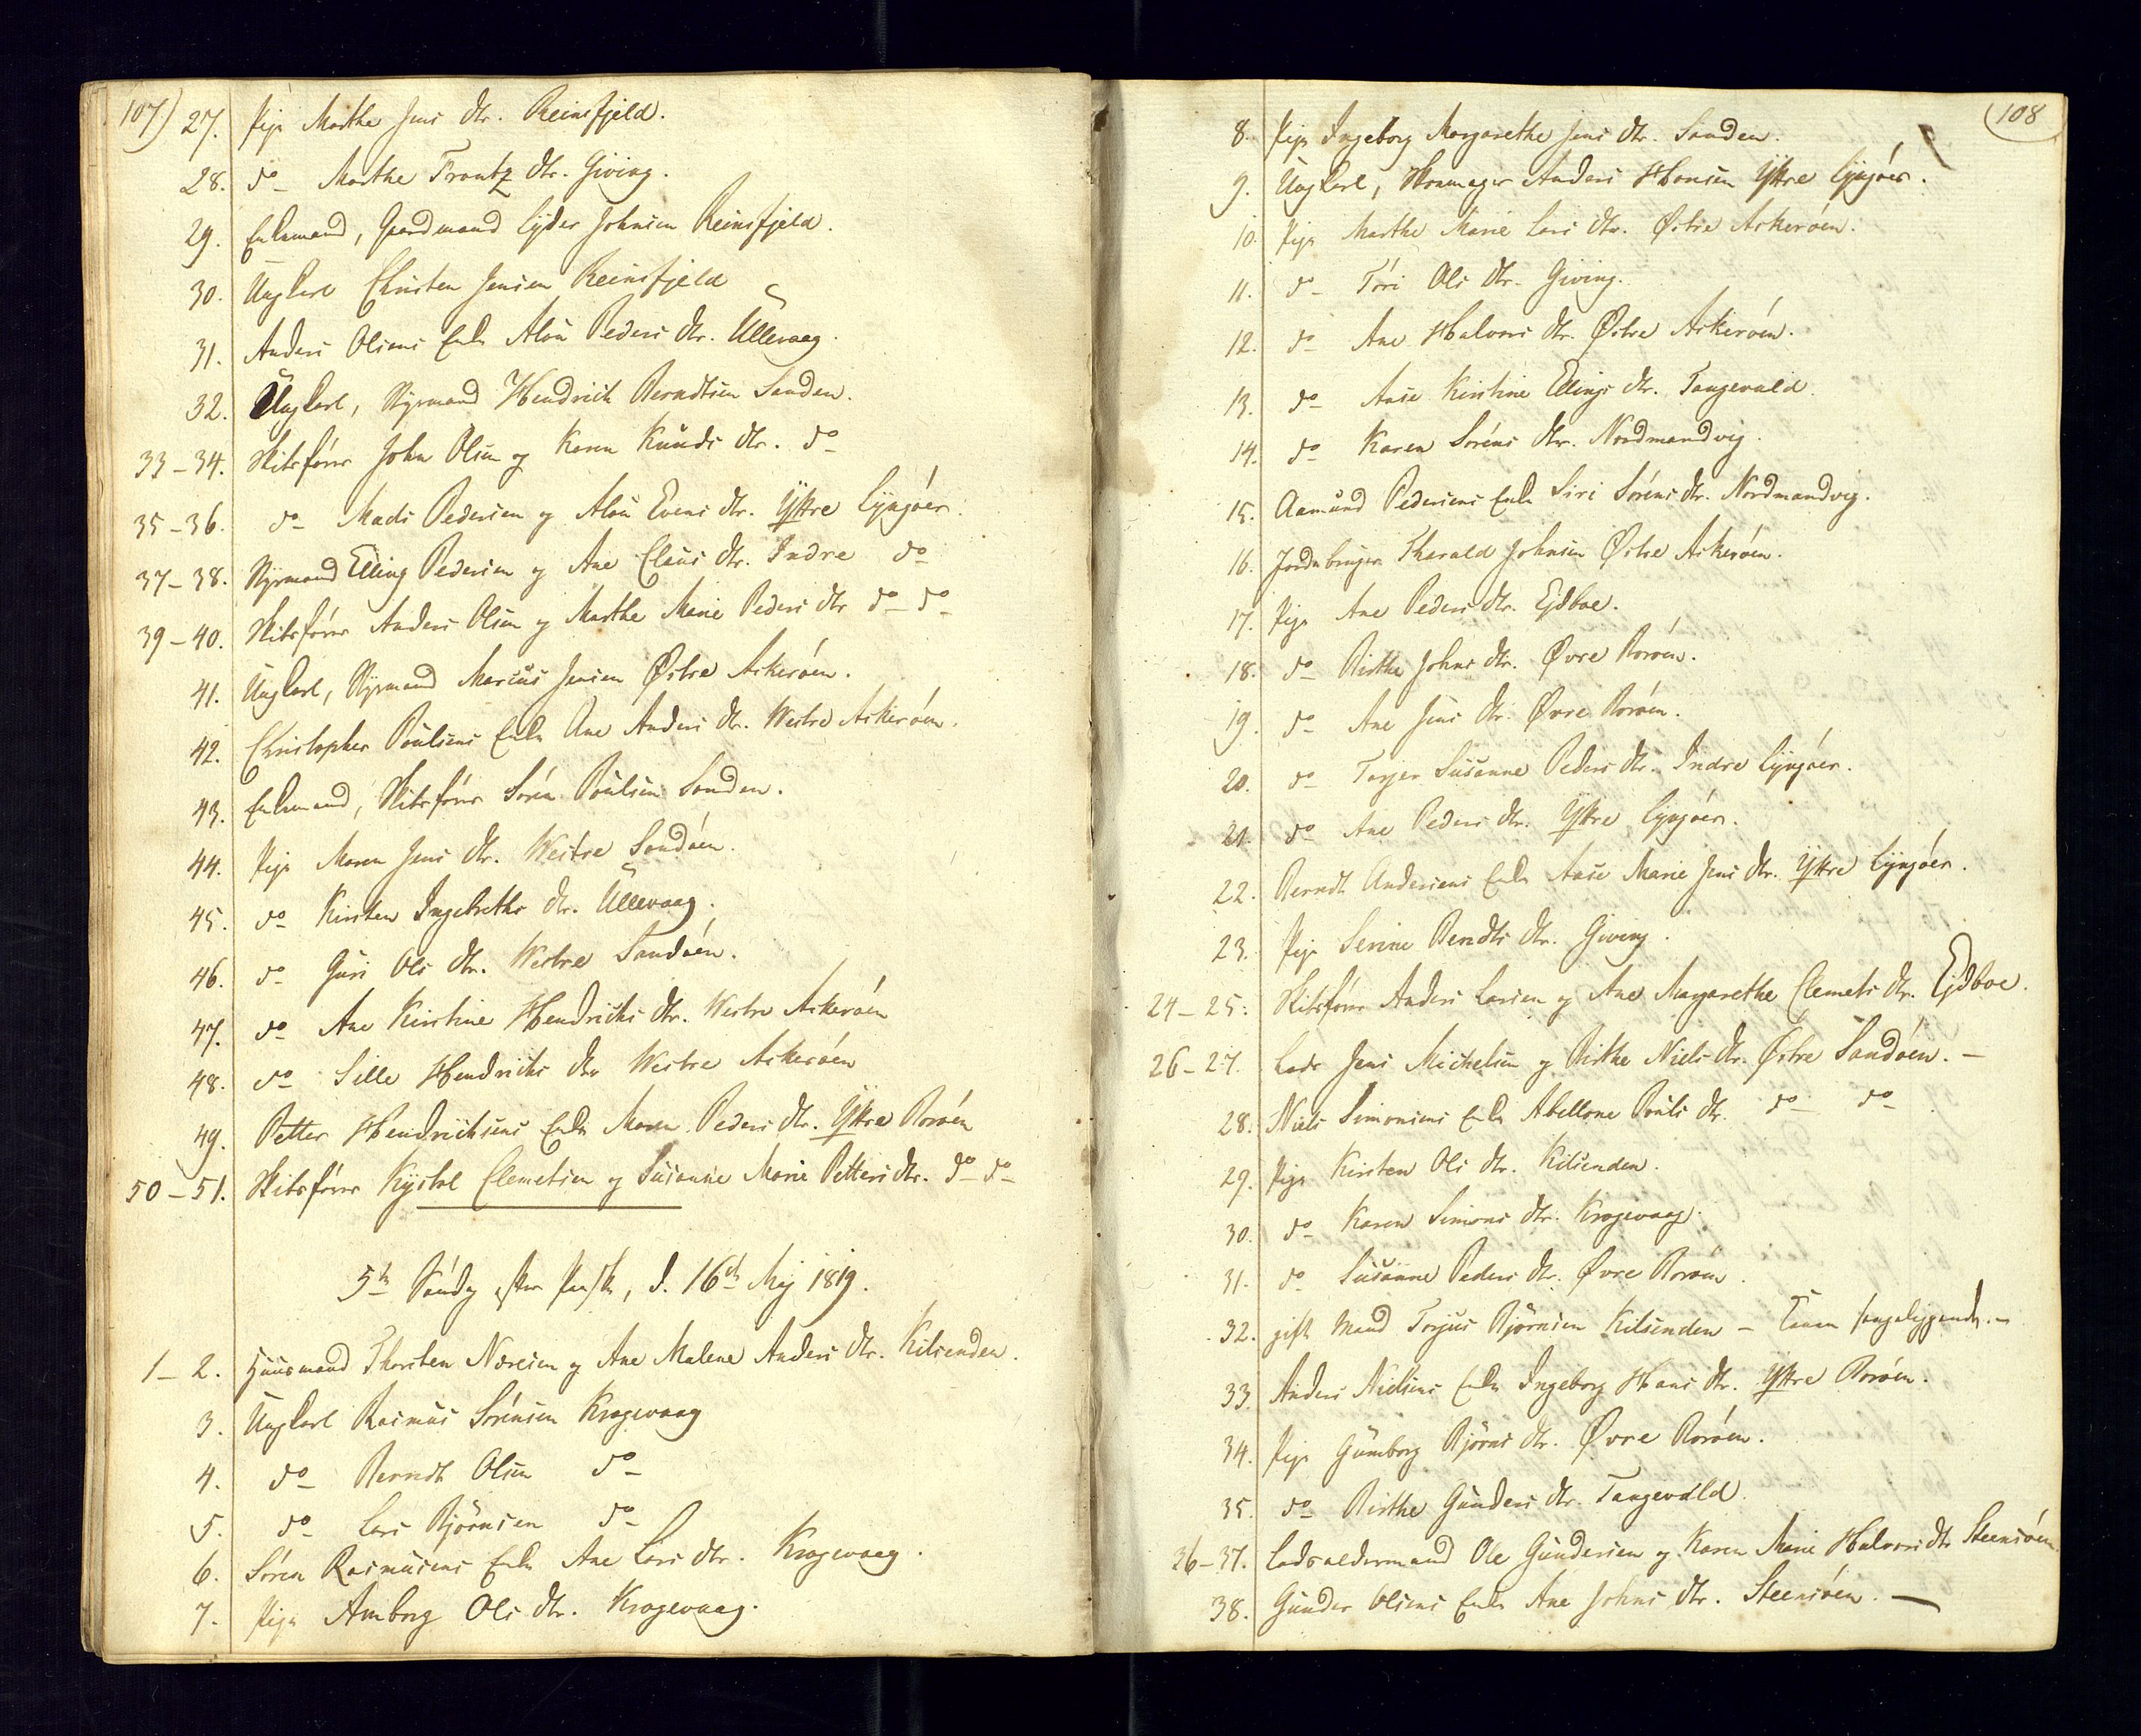 107)
27. Pige Marthe Jens dtr. Reinsfjeld.
28. do Marthe Frantz dtr. Giving.
29. Enkemand, Gaardmand Lyder Johnsen Reinsfjeld.
30. Ungkarl Christen Jensen Reinsfjeld
31. Anders Olsens Enke Alou Peders dtr. Ullevaag.
32. Ungkarl, Styrmand Hendrich Berndtsen Sanden.
33-34. Skibsförer John Olsen og Karen Knuds dtr. do
35-36. do Mads Pedersen og Alou Evens dtr. Yttre Lyngöer.
37-38. Styrmand Elling Pedersen og Ane Claus dtr. Indre do
39-40. Skibsförer Anders Olsen og Marthe Marie Peders dtr do do
41. Ungkarl, Styrmand Marcus Jensen Østre Askeröen.
42. Christopher Poulsens Enke Ane Anders dtr. Westre Askeröen.
43. Enkemand, Skibsförer Sören Poulsen Sanden.
44. Pige Maren Jens dtr. Westre Sandöen.
45. do Kirsten Ingebreths dtr. Ullevaag.
46. do Guri Ols dtr. Westre Sandöen.
47. do Ane Kirstine Hendrichs dtr. Westre Askeröen
48. do Sille Hendrichs dtr Westre Askeröen
49. Petter Hendrichsens Enke Maren Peders dtr. Yttre Boröen
50-51. Skibsförer Kystol Clemetsen og Susanne Marie Petters dtr. do do
5te Søndag efter Paaske, d. 16de Maj 1819.
1-2. Huusmand Thorsten Næresen og Ane Malene Anders dtr. Kilsenden.
3. Ungkarl Rasmus Sörensen Kragevaag
4. do Berndt Olsen do
5. do Lars Björnsen do
6. Sören Rasmusens Enke Ane Lars dtr. Kragevaag.
7. Pige Amborg Ols dtr. Kragevaag.
108
8. Pige Ingeborg Margarethe Jens dtr. Sanden.
9. Ungkarl, Anders Hansen Yttre Lyngöer.
10. Pige Marthe Marie Lars dtr. Østre Askeröen.
11. do Töri Ols dtr. Giving.
12. do Ane Halvors dtr. Østre Askeröen.
13. do Anse Kirstine Ellings dtr. Tangevald.
14. do Karen Sörens dtr. Nordmandvig.
15. Aamund Pedersens Enke Siri Sörens dtr. Nordmandvig.
16. Jordbruger Tharald Johnsen Østre Askeröen.
17. Pige Ane Peders dtr. Ejdboe.
18. do Birthe Johns dtr. Øvre Boröen.
19. do Ane Jens dtr. Øvre Boröen.
20. do Torjer Susanne Peders dtr. Indre Lyngöer.
21. do Ane Peders dtr. Yttre Lyngöer.
22. Berndt Andersens Enke Anse Marie Jens dtr. Yttre Lyngöer.
23. Pige Serine Berndts dtr. Giving.
24-25. Skibsförer Anders Larsen og Ane Margarethe Clemets dtr. Ejdboe.
26-27. Lods Jens Michelsen og Birthe Niels dtr. Østre Sandöen. -
28. Niels Simonsens Enke Abellone Pouls dtr. do do
29. Pige Kirsten Ols dtr. Kilsenden.
30. do Karen Simons dtr. Kragevaag.
31. do Susanne Peders dtr. Øvre Boröen.
32. gift Mand Torjus Björnsen Kilsenden - sengeliggende. -
33. Anders Nielsens Enke Ingeborg Hans dtr. Yttre Boröen.
34. Pige Gumborg Björns dtr. Øvre Boröen.
35. do Birthe Gunders dtr. Tangevald.
36-37. Lodsaldermand Ole Gundersen og Karen Marie Halvors dtr Steensöen.
38. Gunder Olsens Enke Ane Johns dtr. Steensöen. -